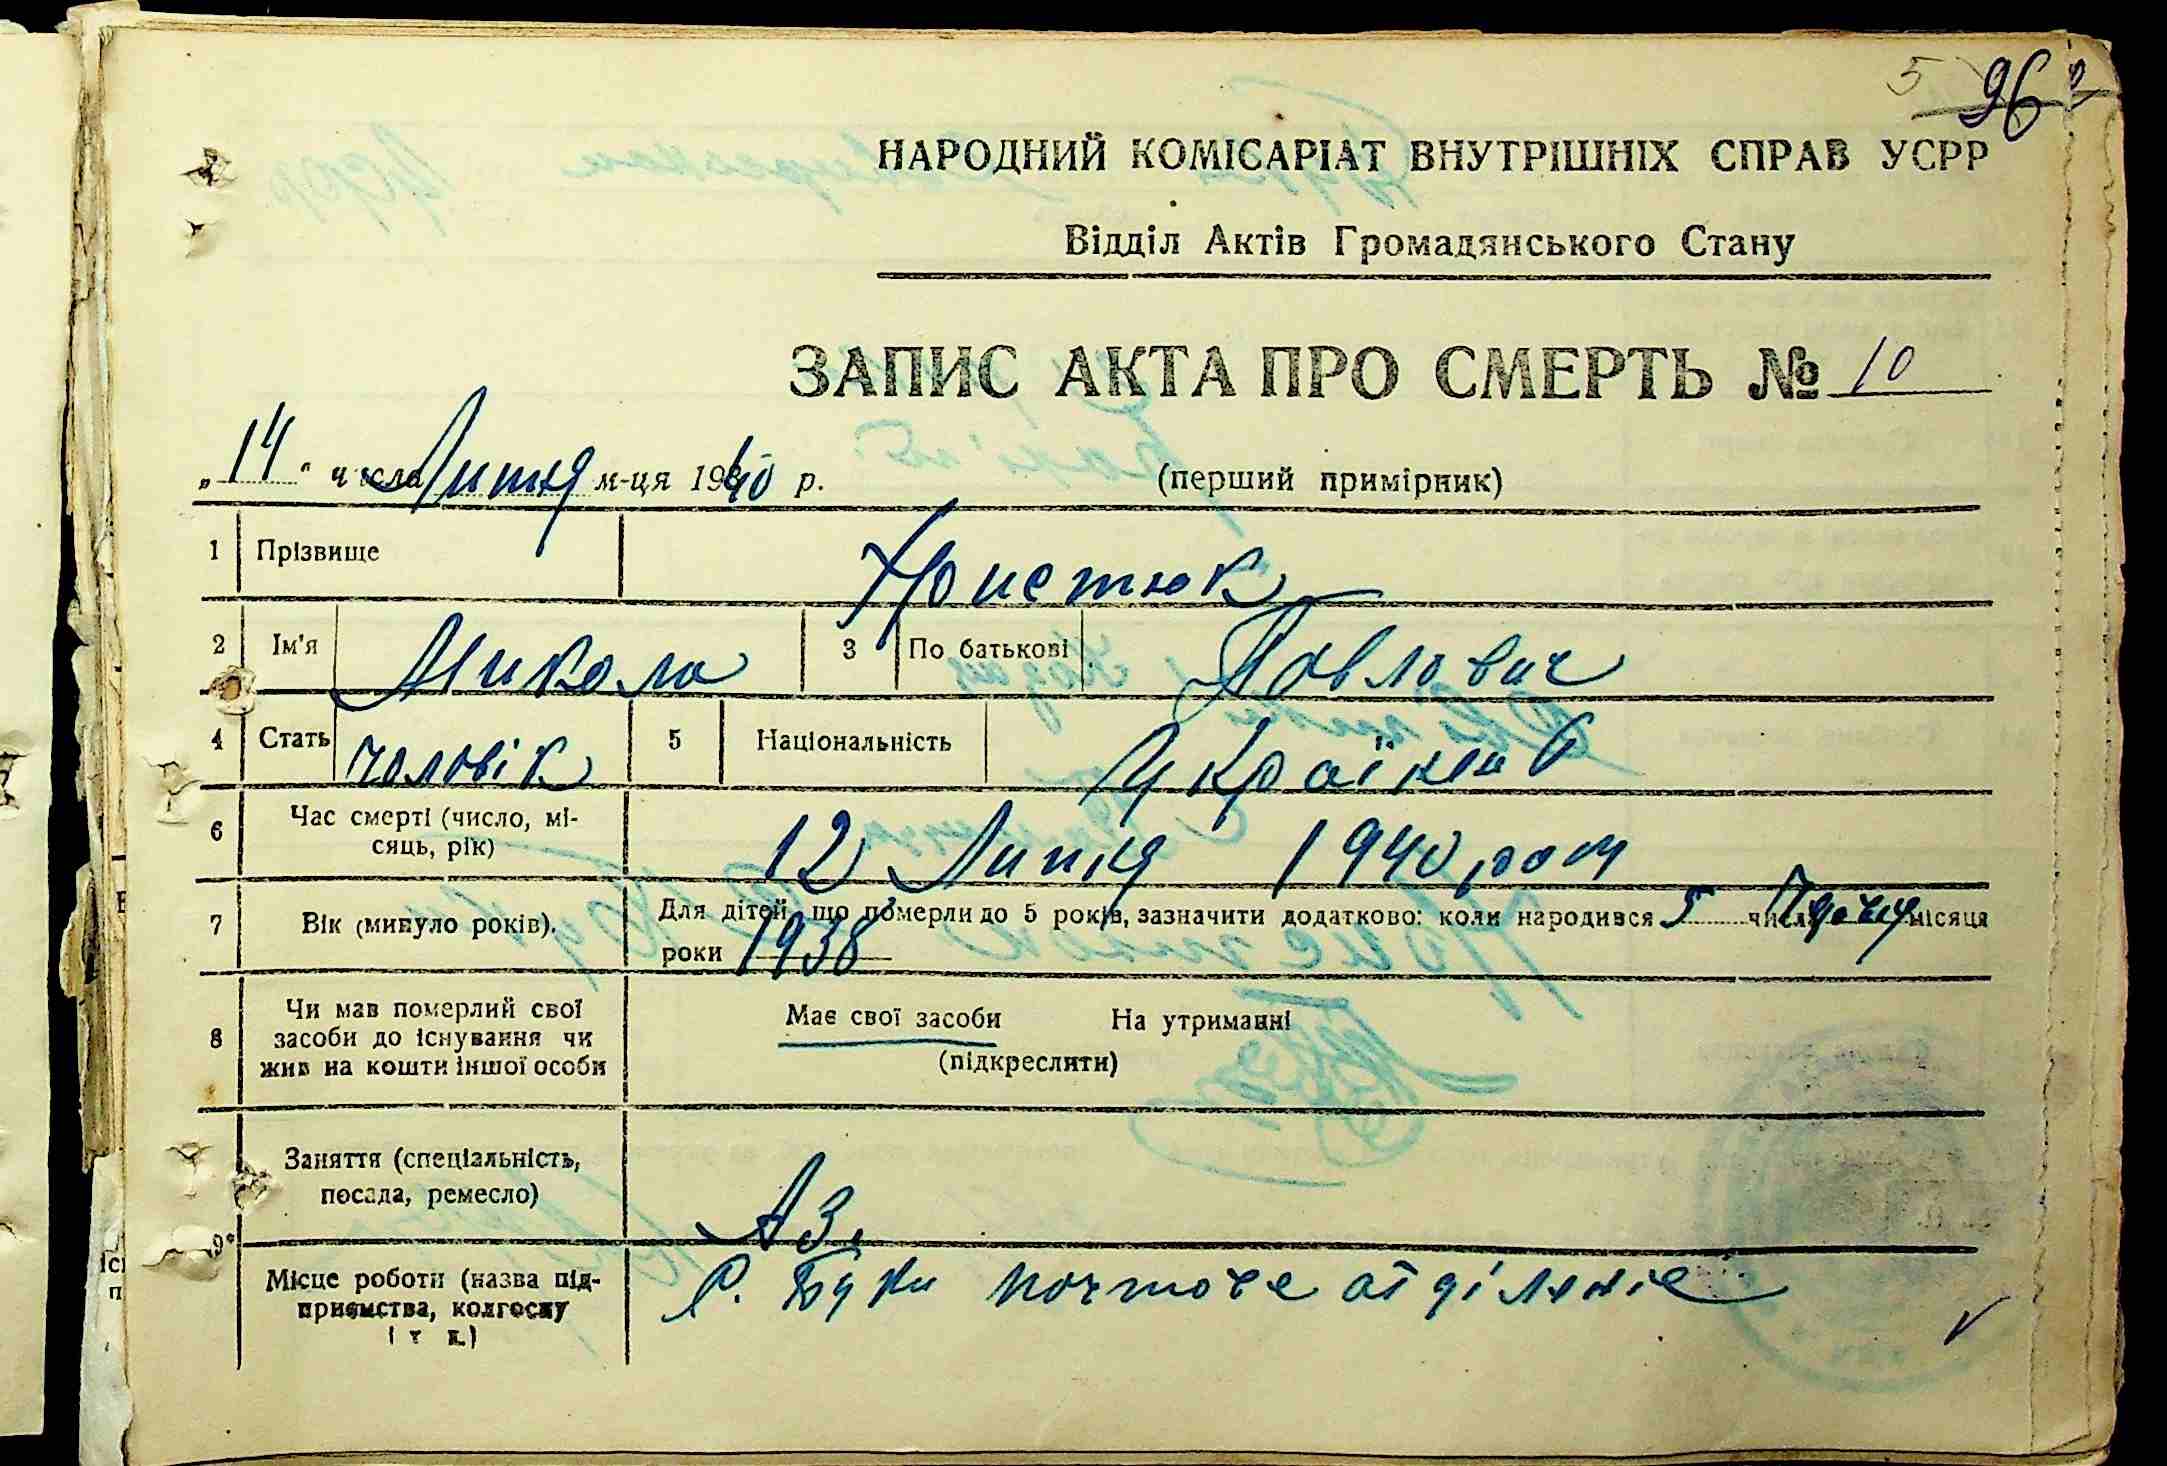 5 96
НАРОДНИЙ КОМІСАРІАТ ВНУТРІШНІХ СПРАВ УСРР
Відділ Актів Громадянського Стану
ЗАПИС АКТА ПРО СМЕРТЬ № 10
„14" числа Липня м-ця 1940 р. (перший примірник)
1 Прізвище Христюк
2 Ім'я Микола 3 По батькові Павлович
4 Стать чоловік 5 Національність Українец
6 Час смерті (число, мі-
сяць, рік) 12 Липня 1940 року
7 Вік (минуло років). Для дітей, що померли до 5 років, зазначити додатково: коли народився 5 числа місяця
роки 1938
8 Чи мав померлий свої
засоби до існування чи
жив на кошти іншої особи
Має свої засоби На утриманні
(підкреслити)
9 Заняття (спеціальність,
посада, ремесло) АЗ.
Місце роботи (назва під-
приємства, колгоспу
і т. п.) С. Буки почтове отділеніє